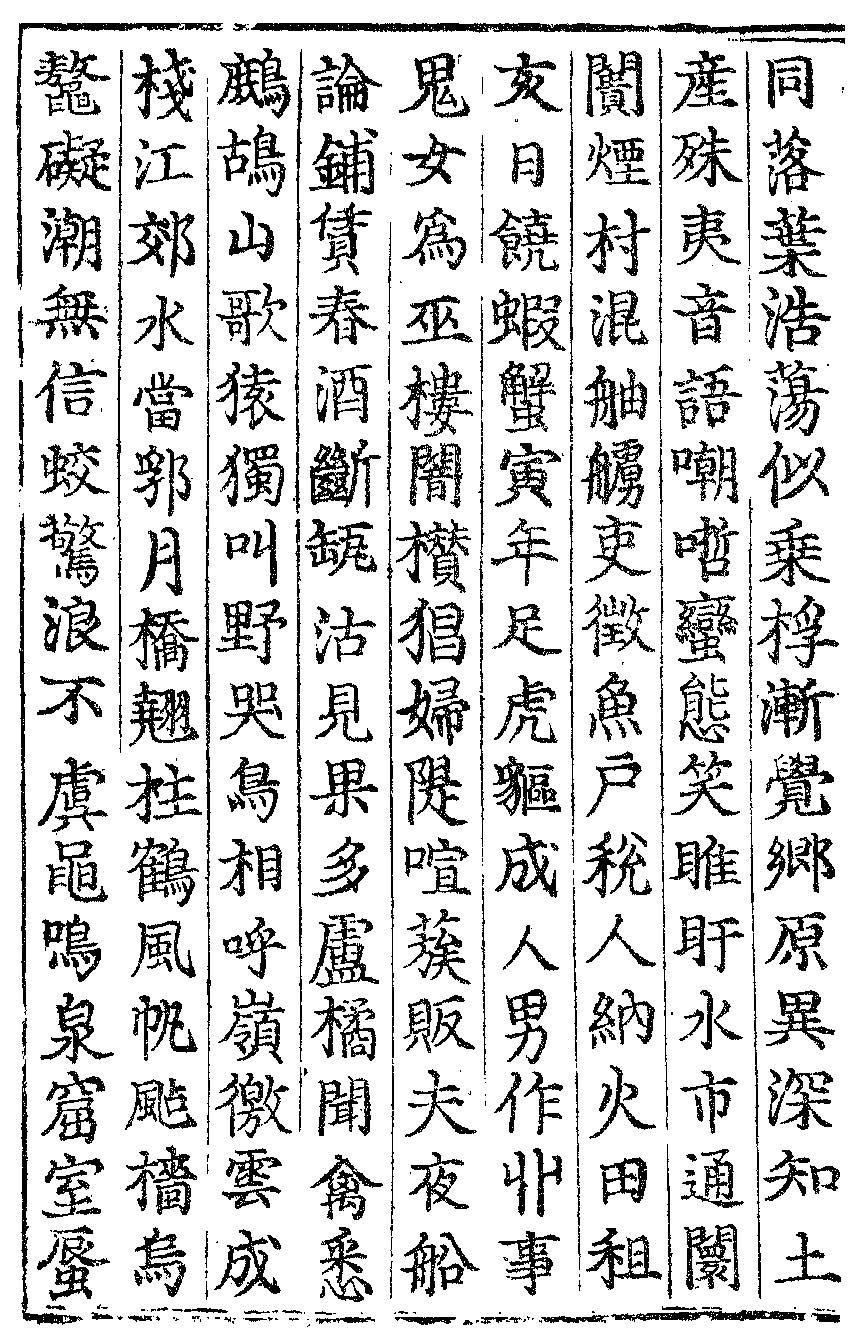 同落葉浩蕩似乗桴漸覺郷原異深知土
産殊夷音語嘲哳蠻態笑睢盱水市通闤
闠煙村混舳艫吏徵魚戸稅人納火田租
亥日饒蝦蟹寅年足虎貙成人男作丱事
鬼女爲巫樓闇櫕猖婦隄喧蔟販夫夜船
論鋪賃春酒斷瓶沽見果多盧橘聞禽悉
鷓鴣山歌猿獨叫野哭鳥相呼嶺徼雲成
棧江郊水當郛月橋翹柱鶴風帆颭檣烏
鼇礙潮無信蛟驚浪不虞鼉鳴泉窟室蜃